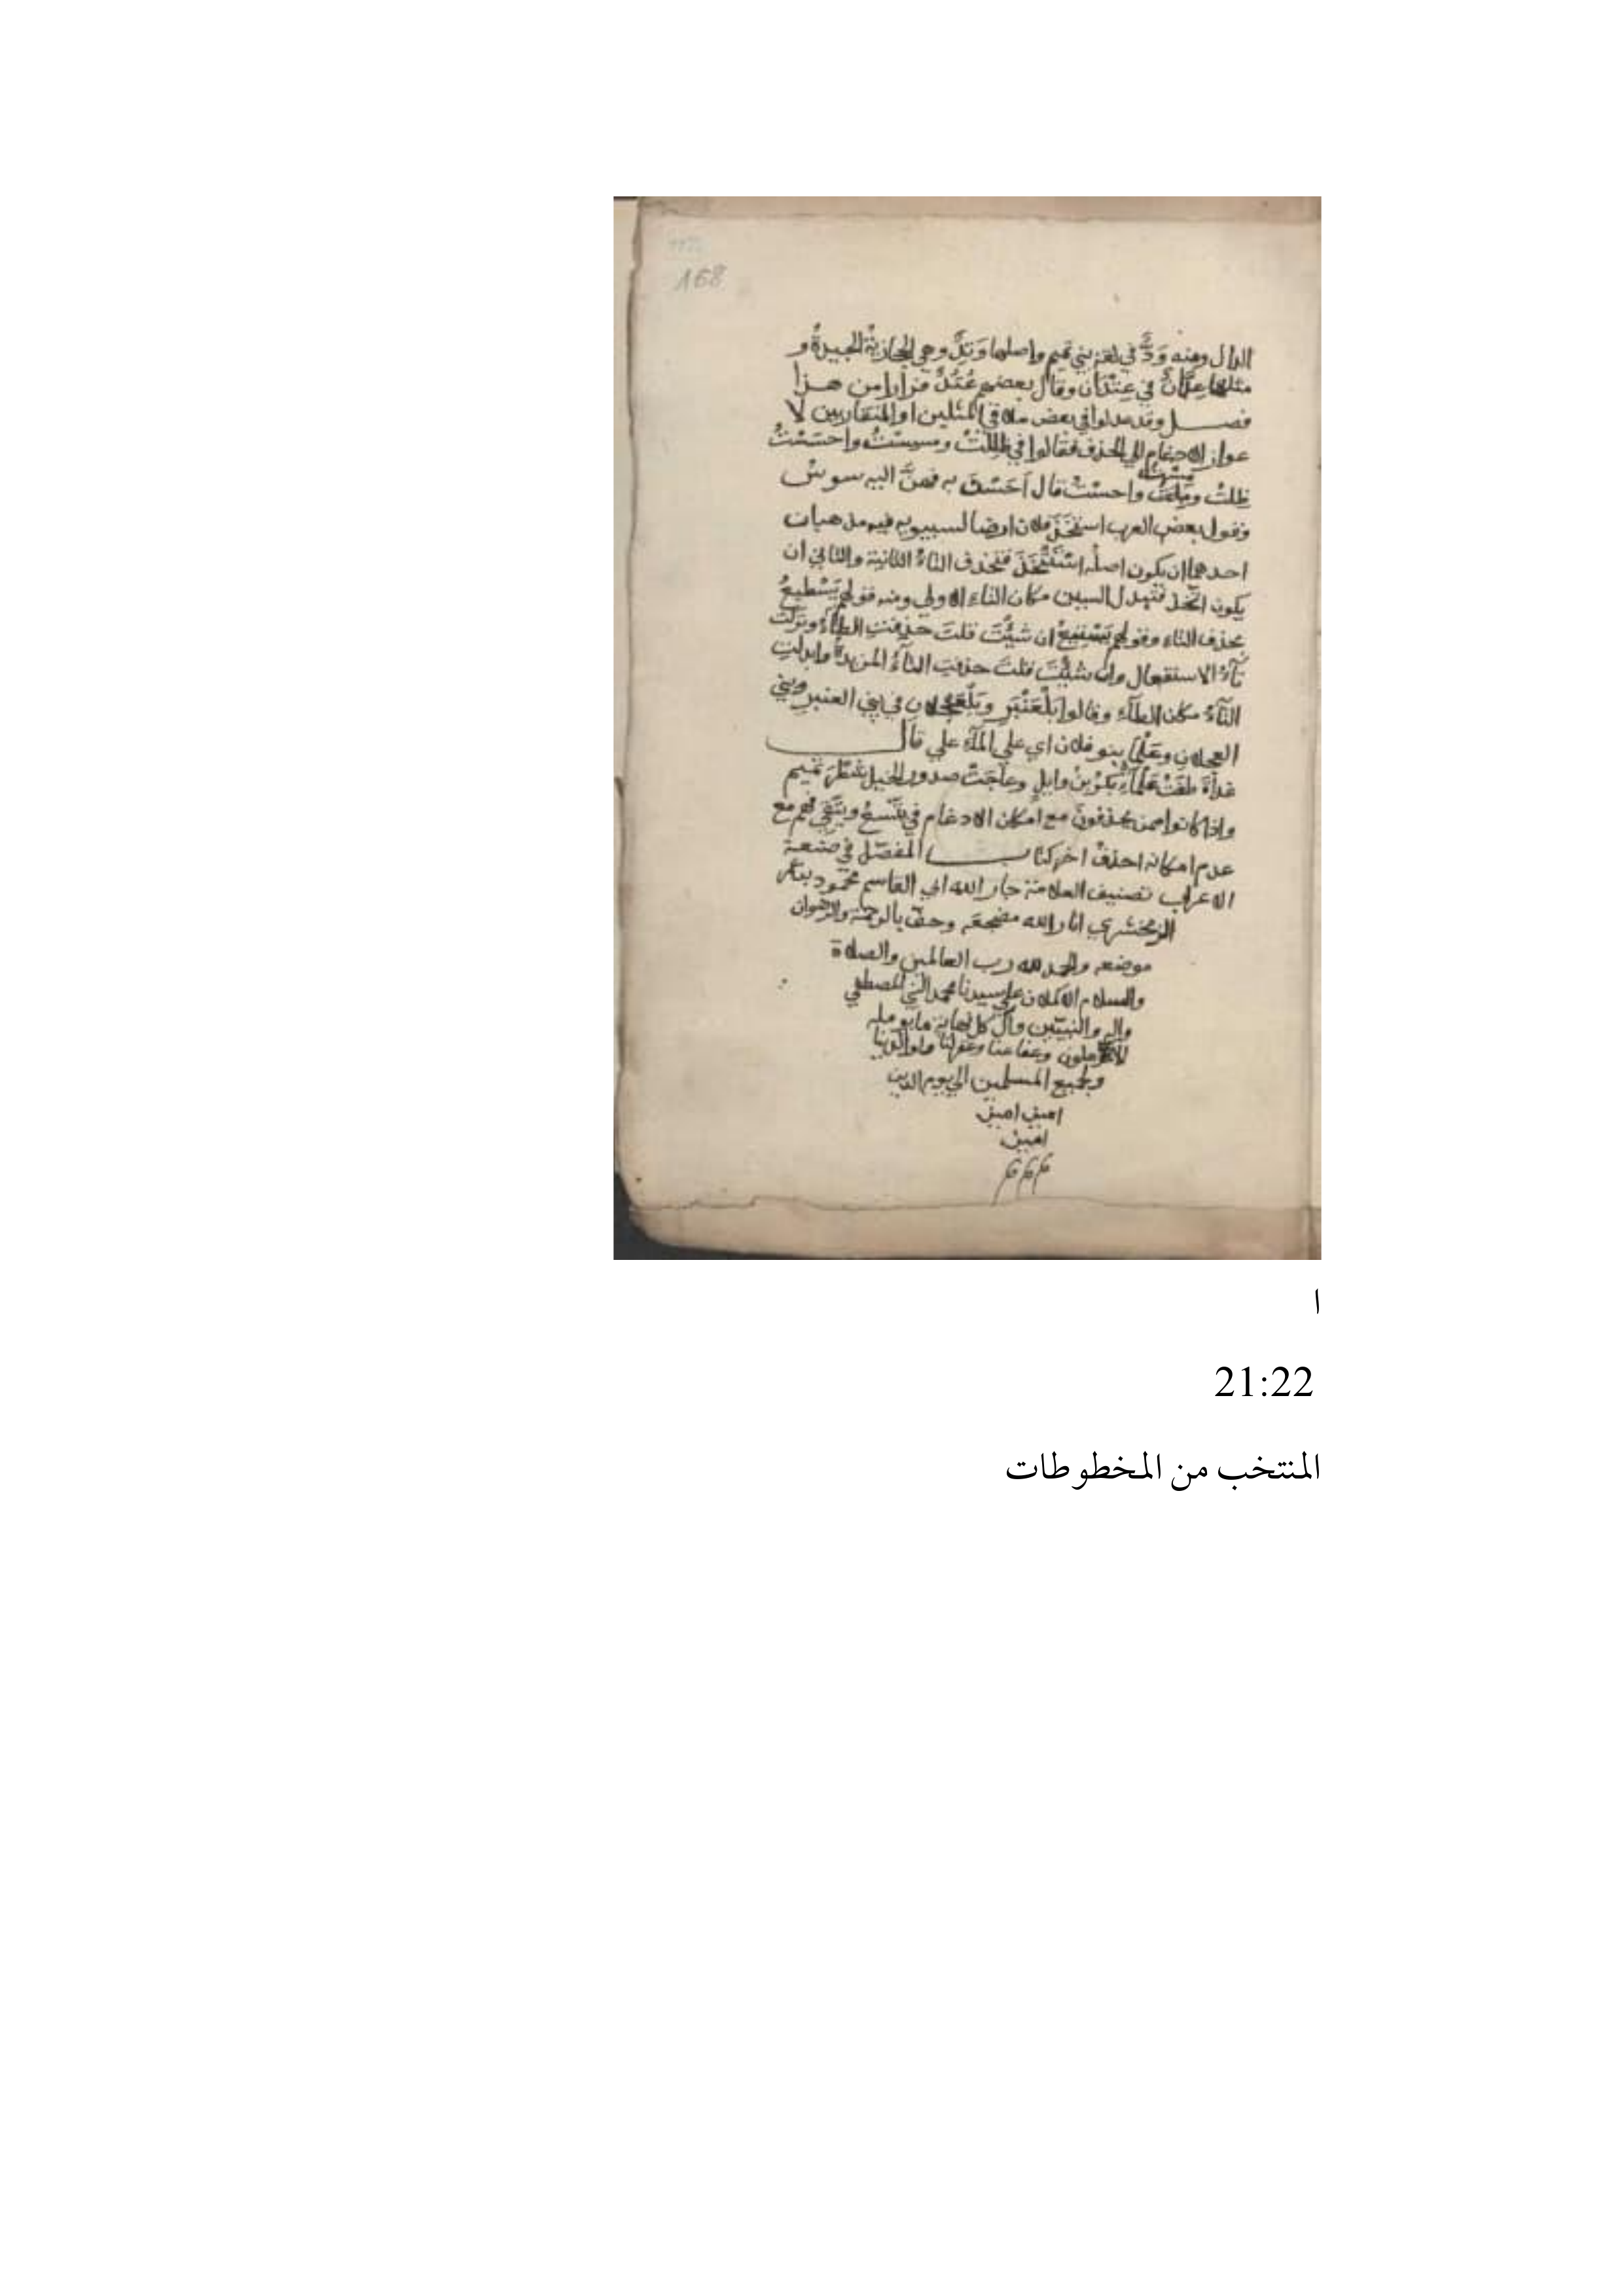 168
الدال ومنه وَدٌّ في لغة بني تميم واصلها وَتِدٌ وهي الحجازية الجيدة و
مثلها عِدَّانٌ في عِتْدَان وقال بعضهم عُتُدٌ فرارا من هذا
فصل وقد عدلوا في بعض ملاقي المثلين او المتقاربين لا
عواز الادغام الي الحذف فقالوا في ظللتُ ومسستُ واحسستُ
ظلتُ واحستُ قال اَحَسْنَ به فهنَّ اليه سوسُ
وقول بعض العرب استخَذَ فلان ارضا لسيبويه فيه مذهبان
احدهما ان يكون اصله اسْتَتْخَذَ فتحذف التاءُ الثانية والثاني ان
يكون اتّخذ فتبدل السين مكان التاء الاولي ومنه قولهم يَسْطيعُ
بحذف التاء وقولهم يَسْتِيعُ ان شئتَ قلتَ حذفت الطاءُ وتركت
تآءُ الاستفعال وان شئتَ قلتَ حذفت التآءُ المزيدةُ وابدلت
التآءُ مكان الطآء وقالوا بَلْعَنْبَرِ وبَلْعَجْلانِ في بني العنبرِ وبني
العجلانِ وعَلْمآءِ بنو فلان اي علي المآء علي قال
غداةَ طَفَتْ عَلْمآءِ بَكْرُ بنُ وايلٍ وعاجَتْ صدور الخيل شطْرَ تميم
واذا كانوا ممن يحذفونَ مع امكان الادغام في يَتَّسعُ ويتَّقي فهم مع
عدم امكانه احذفُ اخر كتاب المفصّل في صنعة
الاعراب تصنيف العلامة جار الله ابي القاسم محمود بن عمر
الزمخشري انار الله مضجعه وحفّ بالرحمة والرضوان
موضعه والحمد لله رب العالمين والصلاة
والسلام الاكملان علي سيدنا محمد النبي المصطفي
واله والنبيّين وآل كل نهاية ما يومله
وعفا عنا وغفر لنا ولوالدينا
ولجميع المسلمين الي يوم الدين
امين امين
امين
م م م
ا
21:22
المنتخب من المخطوطات